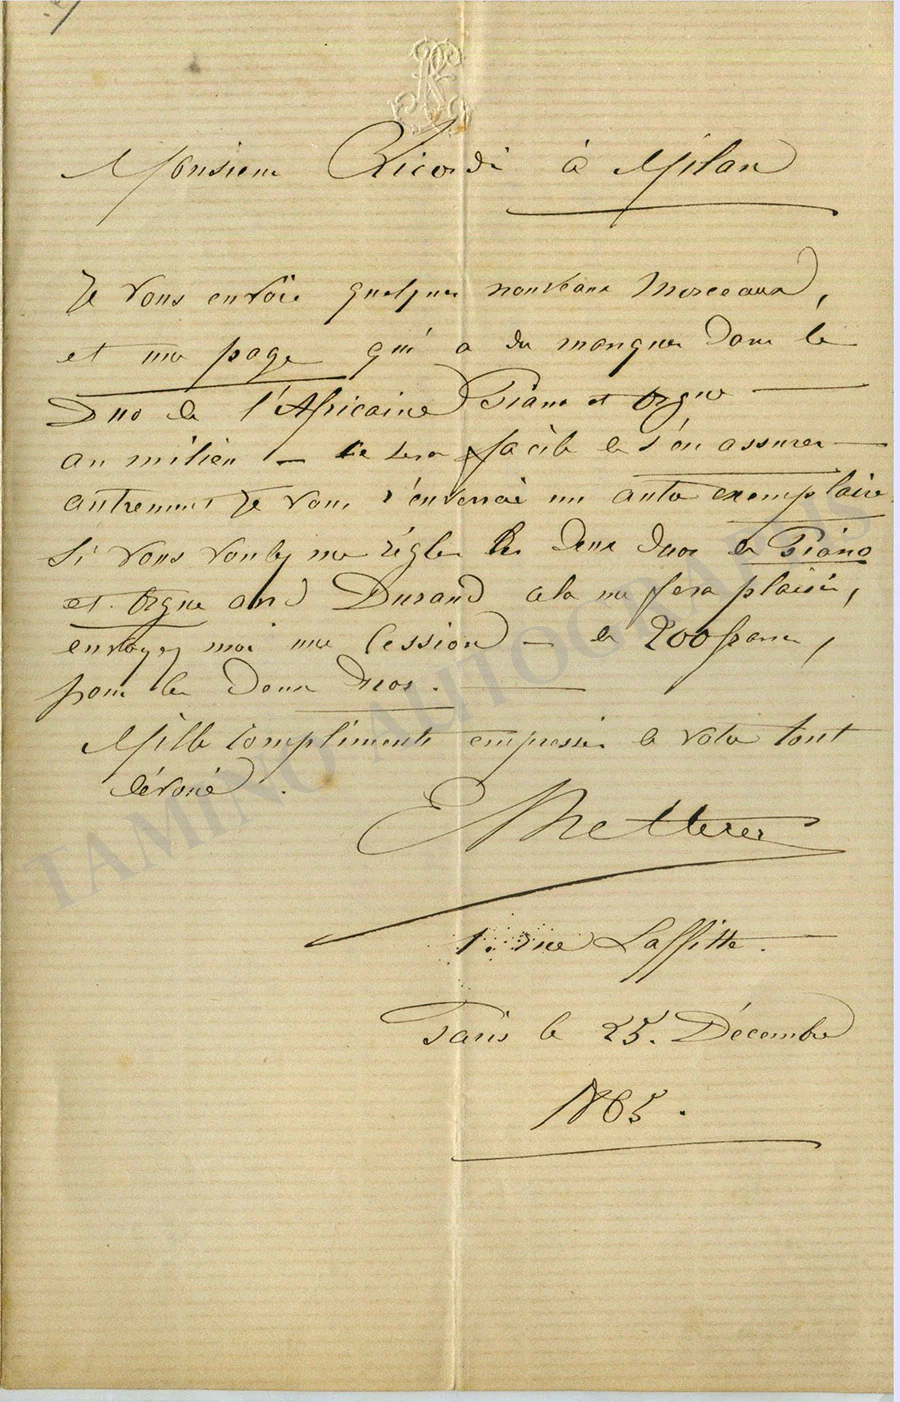 Monsieur Ricordi à Milan
Je vous envoie quelques nouveaux morceaux,
et une page qui a du manquer dans le
Duo de l'Africaine Piano et Orgue —
au milieu — ce sera facile de s'en assurer —
autrement je vous r'enverrai un autre exemplaire
Si vous voulez me règler les deux duos de Piano
et Orgue avec Durand cela me fera plaisir,
envoyez moi une Cession — de 200 francs,
pour les deux duos. —
Mille Compliments empressés de votre tout
dévoué.
E Ketterer
1. rue Laffitte.
Paris le 25. Décembre
1865.
TAMINO AUTOGRAPHS